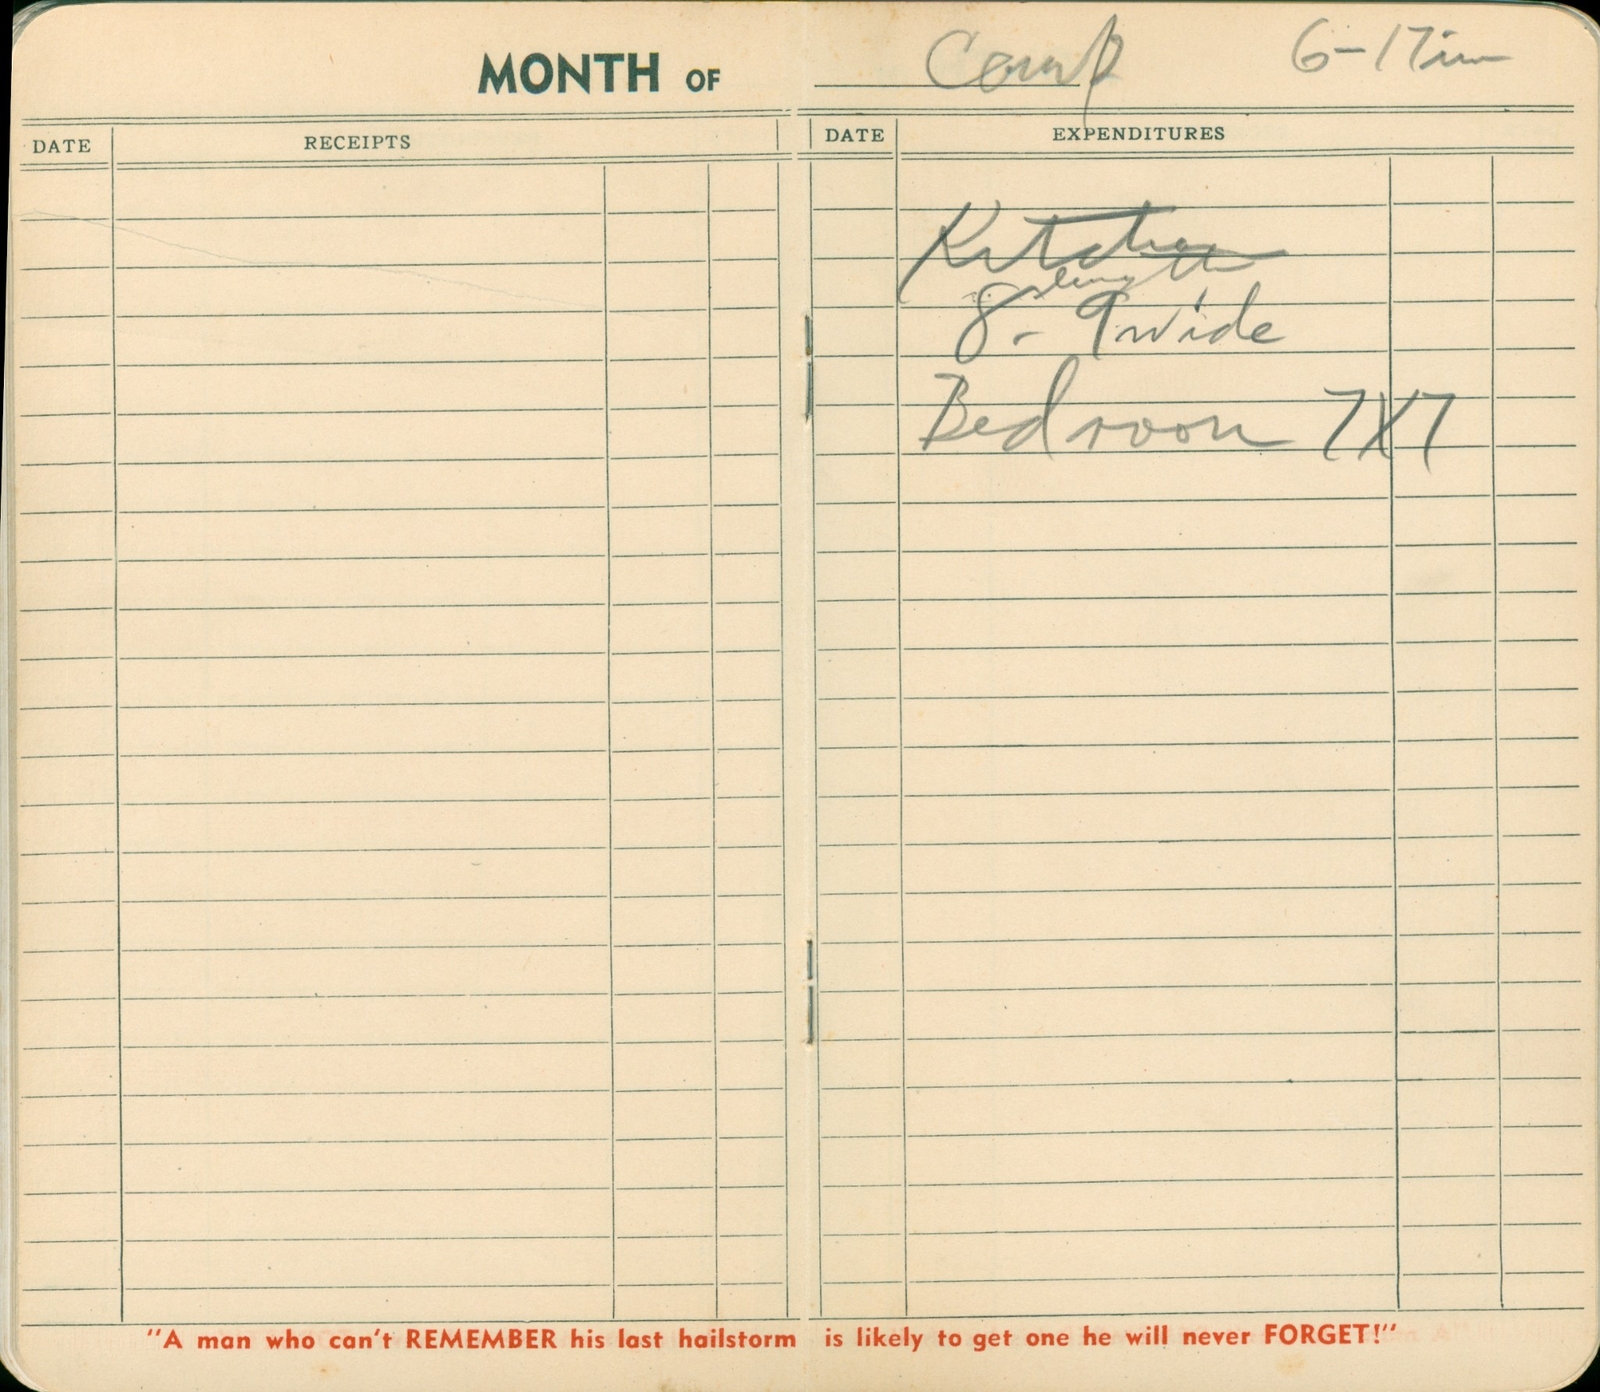 MONTH OF 6-17in
DATE RECEIPTS DATE EXPENDITURES
Kitchen
length
8- 9 wide
Bedroom 7X7
"A man who can't REMEMBER his last hailstorm is likely to get one he will never FORGET!"